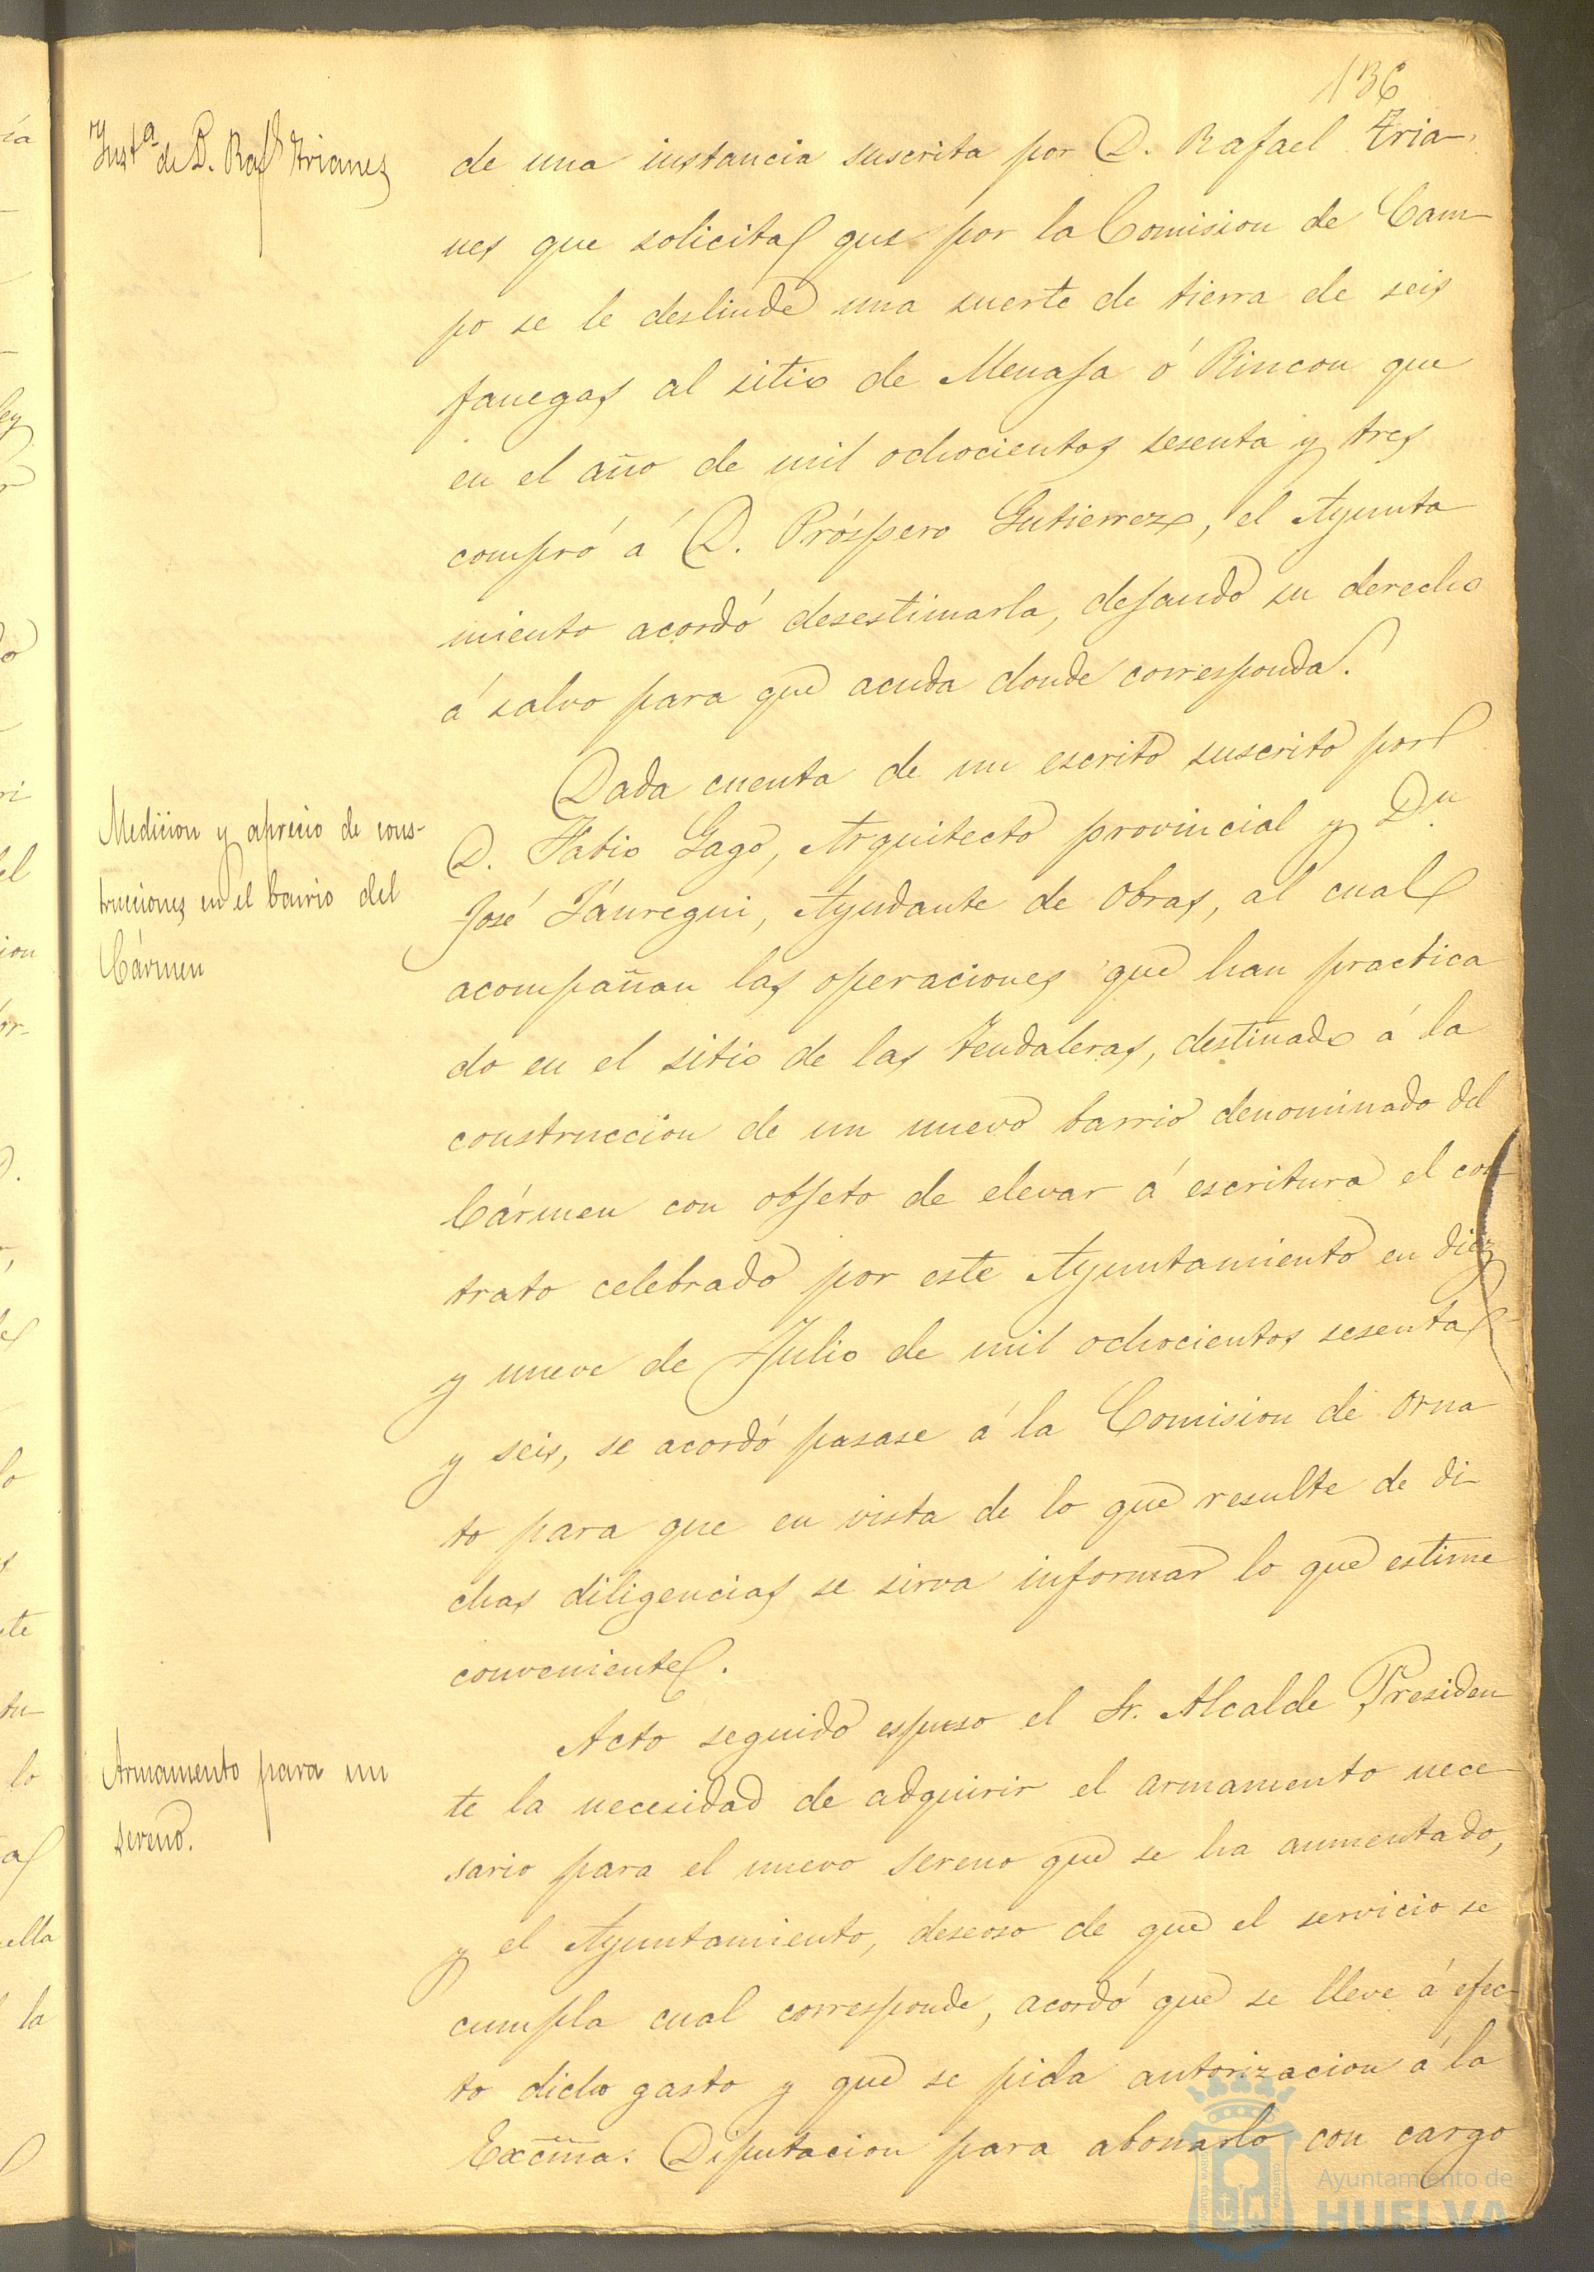 136
Ynstª de D. Raf.l Arianes
de una instancia suscrita por D. Rafael Aria-
nes que solicita que por la Comision de Cam-
po se le deslinde una suerte de tierra de seis
fanegas al sitio de Menaja ó Rincon que
en el año de mil ochocientos sesenta y tres
compró á D. Próspero Gutierrez, el Ayunta
miento acordó desestimarla, dejando su derecho
á salvo para que acuda donde corresponda.
Medicion y aprecio de cons-
trucciones en el barrio del
Cármen
Dada cuenta de un escrito suscrito por
D. Fabio Gago, Arquitecto provincial y D.n
José Jáuregui, Ayudante de Obras, al cual
acompañan las operaciones que han practica
do en el sitio de las Tendaleras, destinado á la
construccion de un nuevo barrio denominado del
Cármen con objeto de elevar á escritura el con-
trato celebrado por este Ayuntamiento en diez
y nueve de Julio de mil ochocientos sesenta
y seis, se acordó pasase á la Comision de Orna
to para que en vista de lo que resulte de di-
chas diligencias se sirva informar lo que estime
conveniente.
Armamento para un
sereno.
Acto seguido espuso el Sr. Alcalde Presiden
te la necesidad de adquirir el armamento nece-
sario para el nuevo sereno que se ha aumentado,
y el Ayuntamiento, deseoso de que el servicio se
cumpla cual corresponde, acordó que se lleve á efec-
to dicho gasto y que se pida autorizacion á la
Excma. Diputacion para abonarlo con cargo
Ayuntamiento de
HUELVA